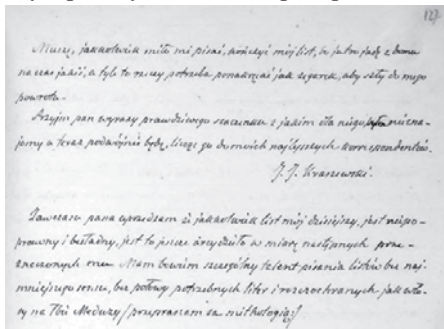 127
Muszę, jakkolwiek miło mi pisać, kończyć mój list, bo jutro jadę z domu
na czas jakiś, a tyle to rzeczy potrzeba ponakręcać jak zegarek, aby szły do mego
powrotu.
Przyjm pan wyrazy prawdziwego szacunku z jakim dla niego nieznajomy
a teraz podwójnie będę, licząc go do moich najlepszych korrespondentów.
J. J. Kraszewski.
Zawczasu pana uprzedzam iż jakkolwiek list mój dzisiejszy, jest niepoprawny
i bezładny, jest to jeszcze arcydzieło w miarę następnych przeznaczonych
mu. Mam bowiem szczególny talent pisania listów bez najmniejszego
sensu, bez połowy potrzebnych liter i rozczochranych jak włosy
na łbie Meduzy (przepraszam za mithologią)